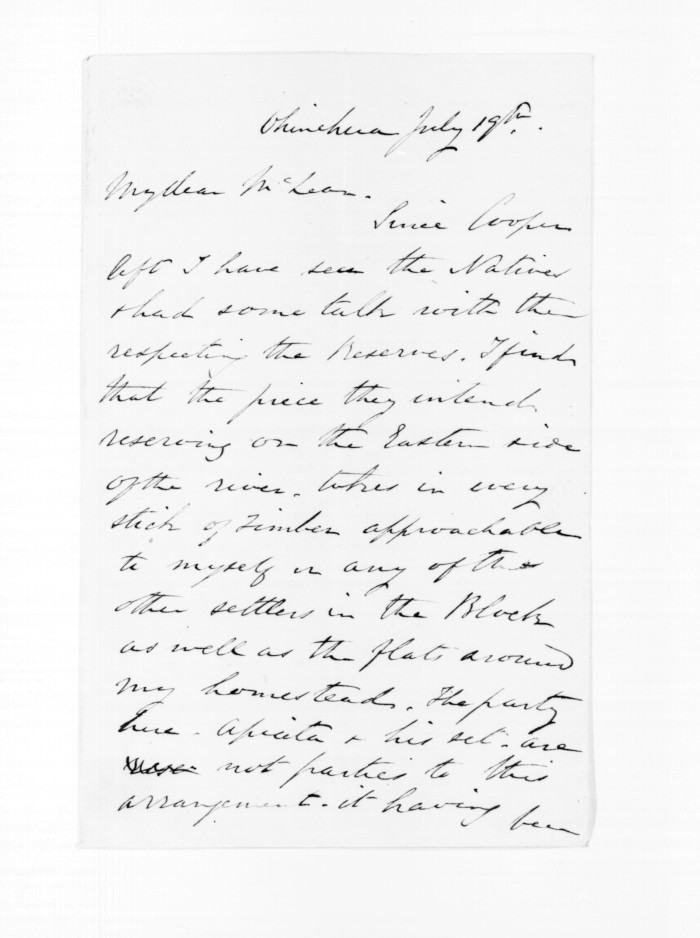 July 19th.
My dear McLean.
Since Cooper
left I have seen the Natives
& had some talk with them
respecting the Reserves. I find
that the piece they intend
reserving on the Eastern side
of the river. takes in every
stick of Timber approachable
to myself or any of the
other settlers in the Block
as well as the flats around
my homestead. The party
here - & his set - are
not parties to this
arrangement - it having been